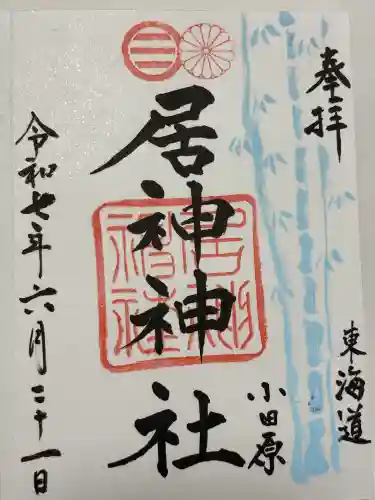 奉拝
東海道
小田原
居神神社
居神神社
令和七年六月二十一日